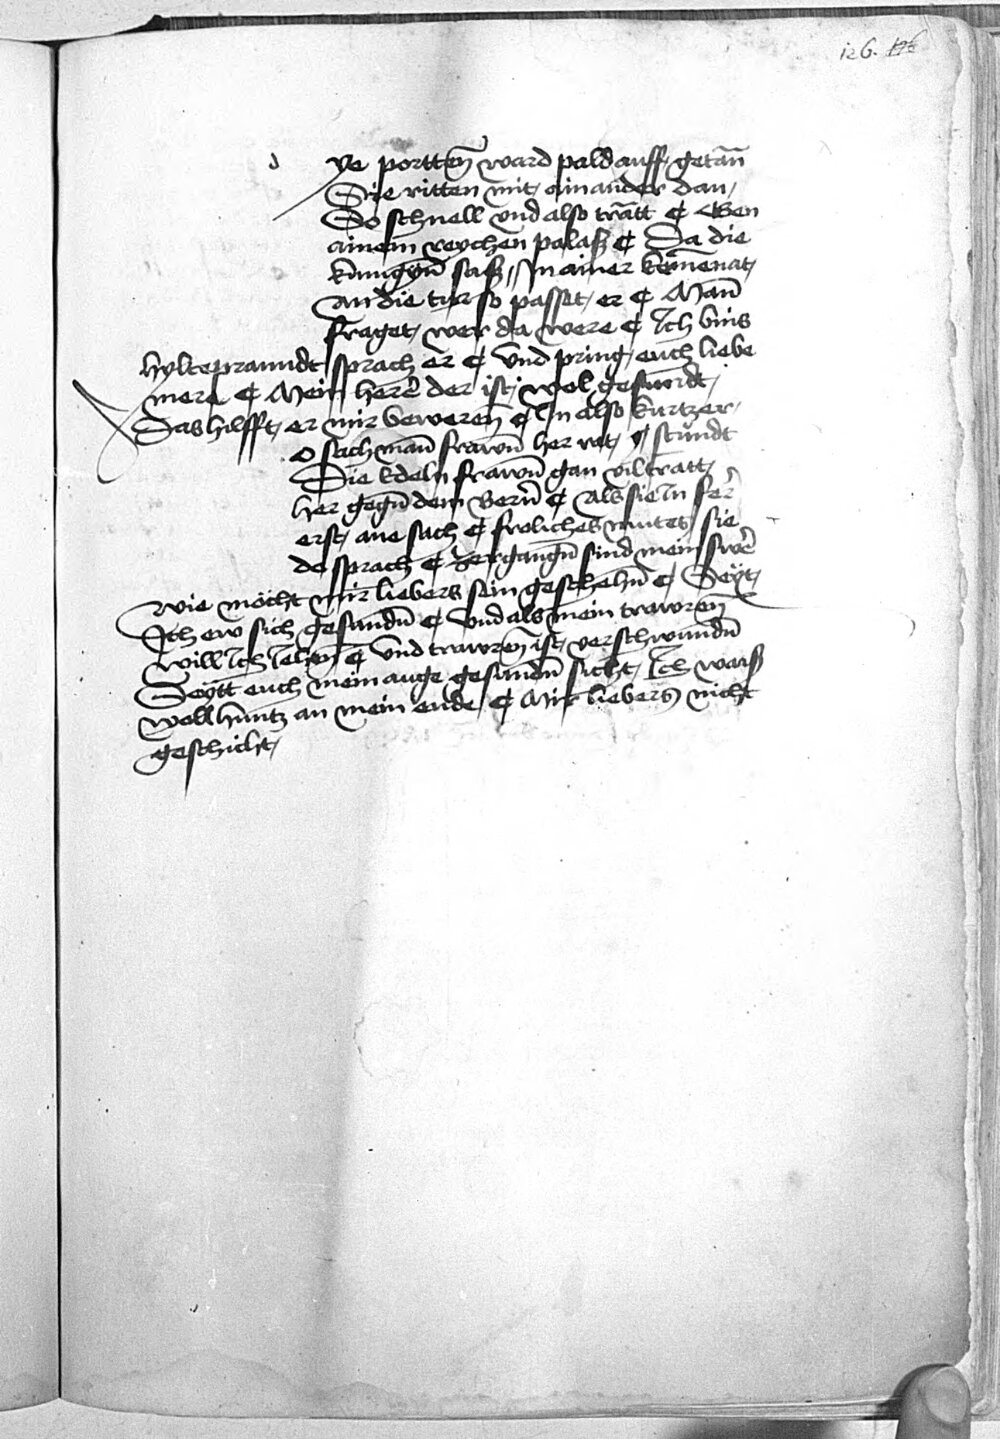 126. 126
d ye portten̄ ward pald auff getan̄
Sie ritten mit ainander dan
So schnell vnd also tratt ¢ Gen
ainem reychen palasz ¢ Da die
kunigyn̄ sasz In ainer kemenat
An die tur so passet er ¢ Man̄
fraget wer da were ¢ Ich bins
hyltepranndt sprach er ¢ vnd pring euch liebe
mere ¢ Mein herr̄ der ist wol gesundt
Das hilfft er mir beweren̄ ¢ In also kurtzer
o sach man̄ frawn̄ her ret ¢ stundt
Die edeln frawn̄ gan vil tratt
her gegn̄ dem Bern̄ ¢ Als sie In fer̄
erst ane sach ¢ froliches mutes sie
do sprach ¢ zergangn̄ sind mein swer̄
wie möcht mir liebers sein geschehn̄ ¢ Seyt
Ich ew sich gesundn̄ ¢ vnd als mein trawren̄
will Ich Iehen̄ ¢ vnd trawren̄ ist verschwundn̄
Seytt euch mein auge gesundn̄ sicht Ich waisz
woll huntz an mein ende ¢ Mir liebers nicht
geschicht